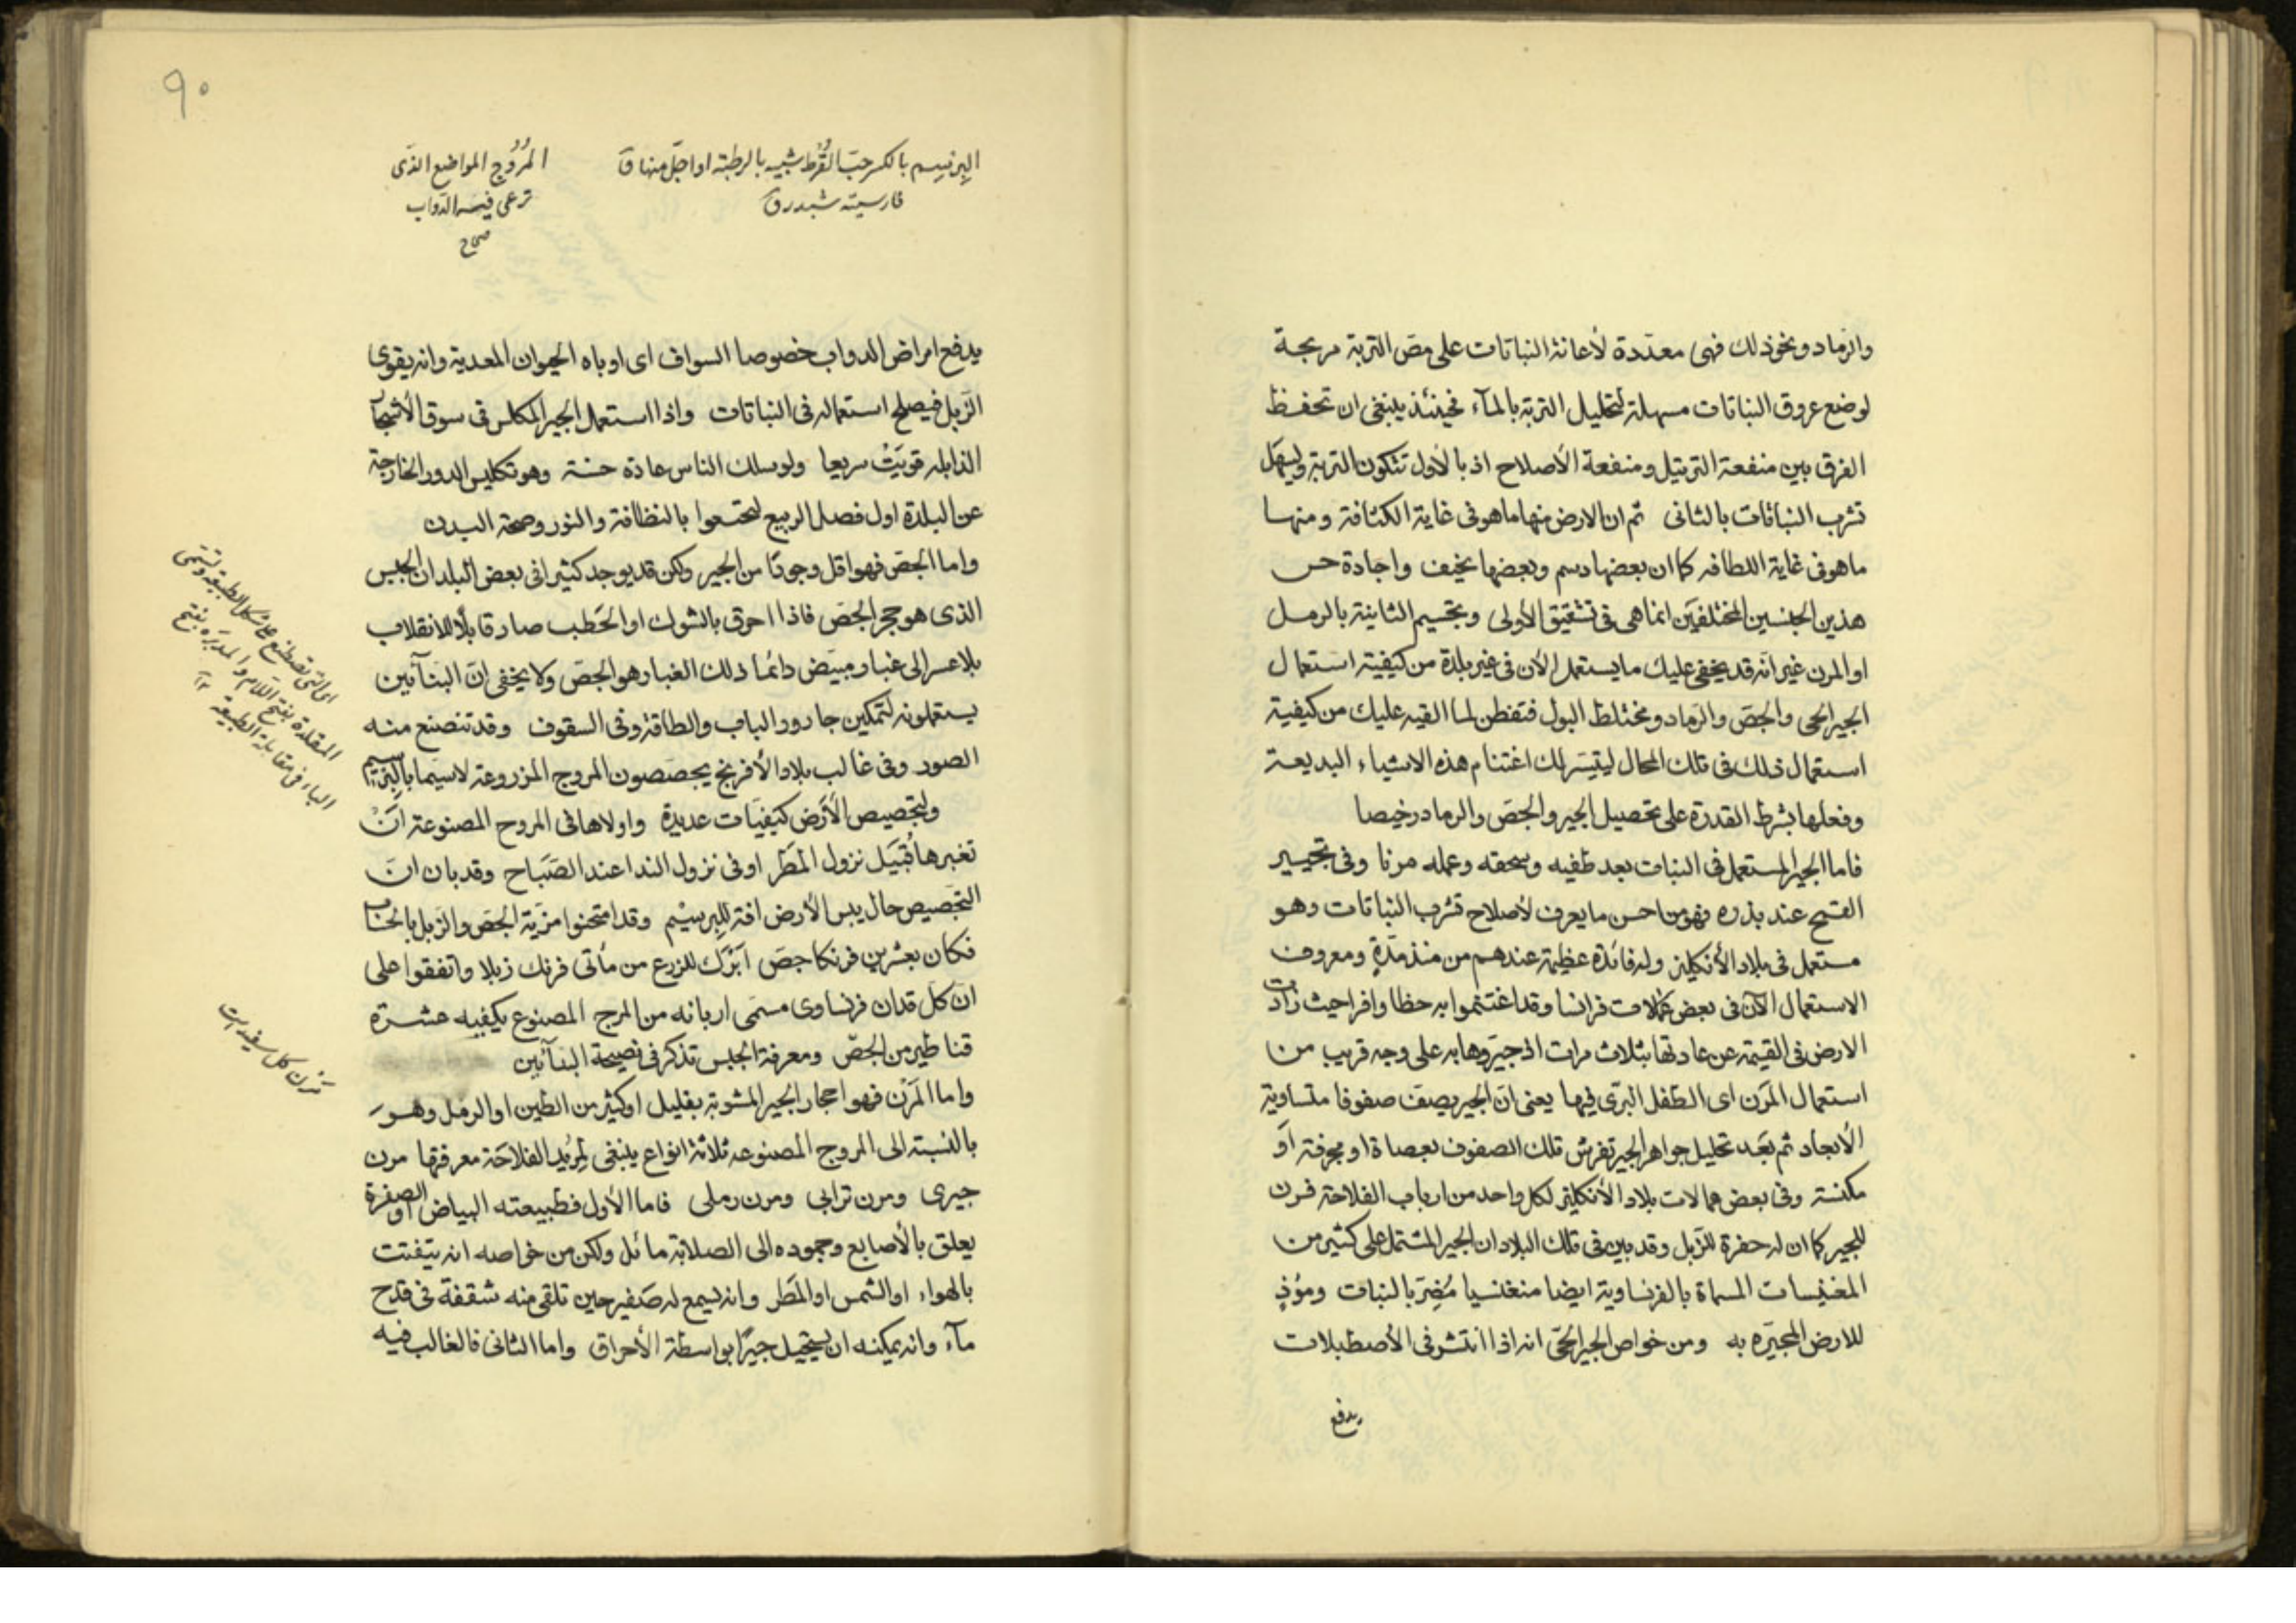 والرماد ونحو ذلك فهى معتددة لأعانة النباتات على مص التربة مريحة
لوضع عروق النباتات مسهلة لتحليل التربة بالمآء فحينئذ ينبغى ان تحفظ
الفرق بين منفعة التزبيل ومنفعة الأصلاح اذ بالأول تتكون التربة ويسهل
تشرب النباتات بالثانى ثم ان الارض منها ما هو فى غاية الكثافة ومنها
ما هو فى غاية اللطافه كما ان بعضها دسم وبعضها نحيف واجادة حس
هذين الجنسين المختلفين انما هى فى تشقيق الأولى وتجسيم الثانية بالرمل
او المرن غير انه قد يخفى عليك ما يستعمل الأن فى غير بلدة من كيفية استعمال
الجير الحى والجص والرماد ومختلط البول فتفطن لما القيه عليك من كيفية
استعمال ذلك فى تلك المحال ليتيسر لك اغتنام هذه الاشياء البديعة
وفعلها بشرط القدرة على تحصيل الجير والجص والرماد رخيصا
فاما الجير المستعمل فى النبات بعد طفيه وسحقه وعمله مرنا وفى تجيير
القمح عند بذره فهو من احسن ما يعرف لأصلاح تشرب النباتات وهو
مستعمل فى بلاد الأنكليز وله فائدة عظيمة عندهم من منذ مدة ومعروف
الاستعمال الآن فى بعض عمالات فرانسا وقد اغتنموا به حظا وافرا حيث زادت
الارض فى القيمة عن عادتها بثلاث مرات اذ جيروها به على وجه قريب من
استعمال المرن اى الطفل البرى فيها يعنى ان الجير يصف صفوفا متساوية
الأبعاد ثم بعد تحليل جواهر الجير تفرش تلك الصفوف بعصاة او مجرفة او
مكنسة وفى بعض عمالات بلاد الأنكليز لكل واحد من ارباب الفلاحة فرن
للجير كما ان له حفرة للزبل وقد بين فى تلك البلاد ان الجير المشتمل على كثير من
المغنيسات المسماة بالفرنساوية ايضا منغنسيا مضر بالنبات ومؤذ
للارض المجيره به ومن خواص الجير الحى انه اذا انتشر فى الأصطبلات
يدفع
٩٠
البرسيم بالكسر حب القرط شبيه بالرطبة او اجل منها ق
فارسيته شبدر ق
المروج المواضع الذى
ترعى فيه الدواب
صحاح
يدفع امراض الدواب خصوصا السواف اى اوباه الحيوان المعدية وانه يقوى
الزبل فيصلح استعماله فى النباتات واذا استعمل الجير المكلس فى سوق الأشجار
الذابله قويت سريعا ولو سلك الناس عادة حسنة وهو تكليس الدور الخارجة
عن البلدة اول فصل الربيع لتمتعوا بالنظافة والنور وصحة البدن
واما الجص فهو اقل وجودا من الجير ولكن قد يوجد كثيرا فى بعض البلدان الجبس
الذى هو حجر الجص فاذا احرق بالشوك او الحطب صار قابلا للانقلاب
بلا عسر الى غبار مبيض دائما ذلك الغبار هو الجص ولا يخفى ان البنآئين
يستعملونه لتمكين جا دور الباب والطاقة وفى السقوف وقد تصنع منه
الصور وفى غالب بلاد الأفرنج يجصصون المروج المزروعة لاسيما بالبرسيم
ولتجصيص الأرض كيفيات عديدة واولاها فى المروج المصنوعة ان
تغبرها قبيل نزول المطر او فى نزول الندا عند الصباح وقد بان ان
التجصيص حال يبس الأرض افة للبرسيم وقد امتحنوا مزية الجص والزبل بالحساب
فكان بعشرين فرنكا جص ابرك للزرع من مأتى فرنك زبلا واتفقوا على
ان كل فدان فرنساوى مسمى اربانه من المرج المصنوع يكفيه عشرة
قناطير من الجص ومعرفة الجبس تذكر فى نصيحة البنآئين
واما المرن فهو احجار الجير المشوبة بقليل او كثير من الطين او الرمل وهو
بالنسبة الى المروج المصنوعه ثلاثة انواع ينبغى لمريد الفلاحة معرفتها مرن
جيرى ومرن ترابى ومرن رملى فاما الأول فطبيعته البياض او الصفرة
يعلق بالأصابع وجموده الى الصلابة مائل ولكن من خواصه انه يتفتت
بالهواء او الشمس او المطر وانه يسمع له صفير حين تلقى منه شقفة فى قدح
مآء وانه يمكنه ان يستحيل جيرا بواسطة الأحراق واما الثانى فالغالب فيه
اى التى تصطنع على شكل الطبيعة وتسمى
المقلدة بفتح اللام والمدبره بفتح
الباء فى مقابلة الطبيعة
مرن كل سفيد است